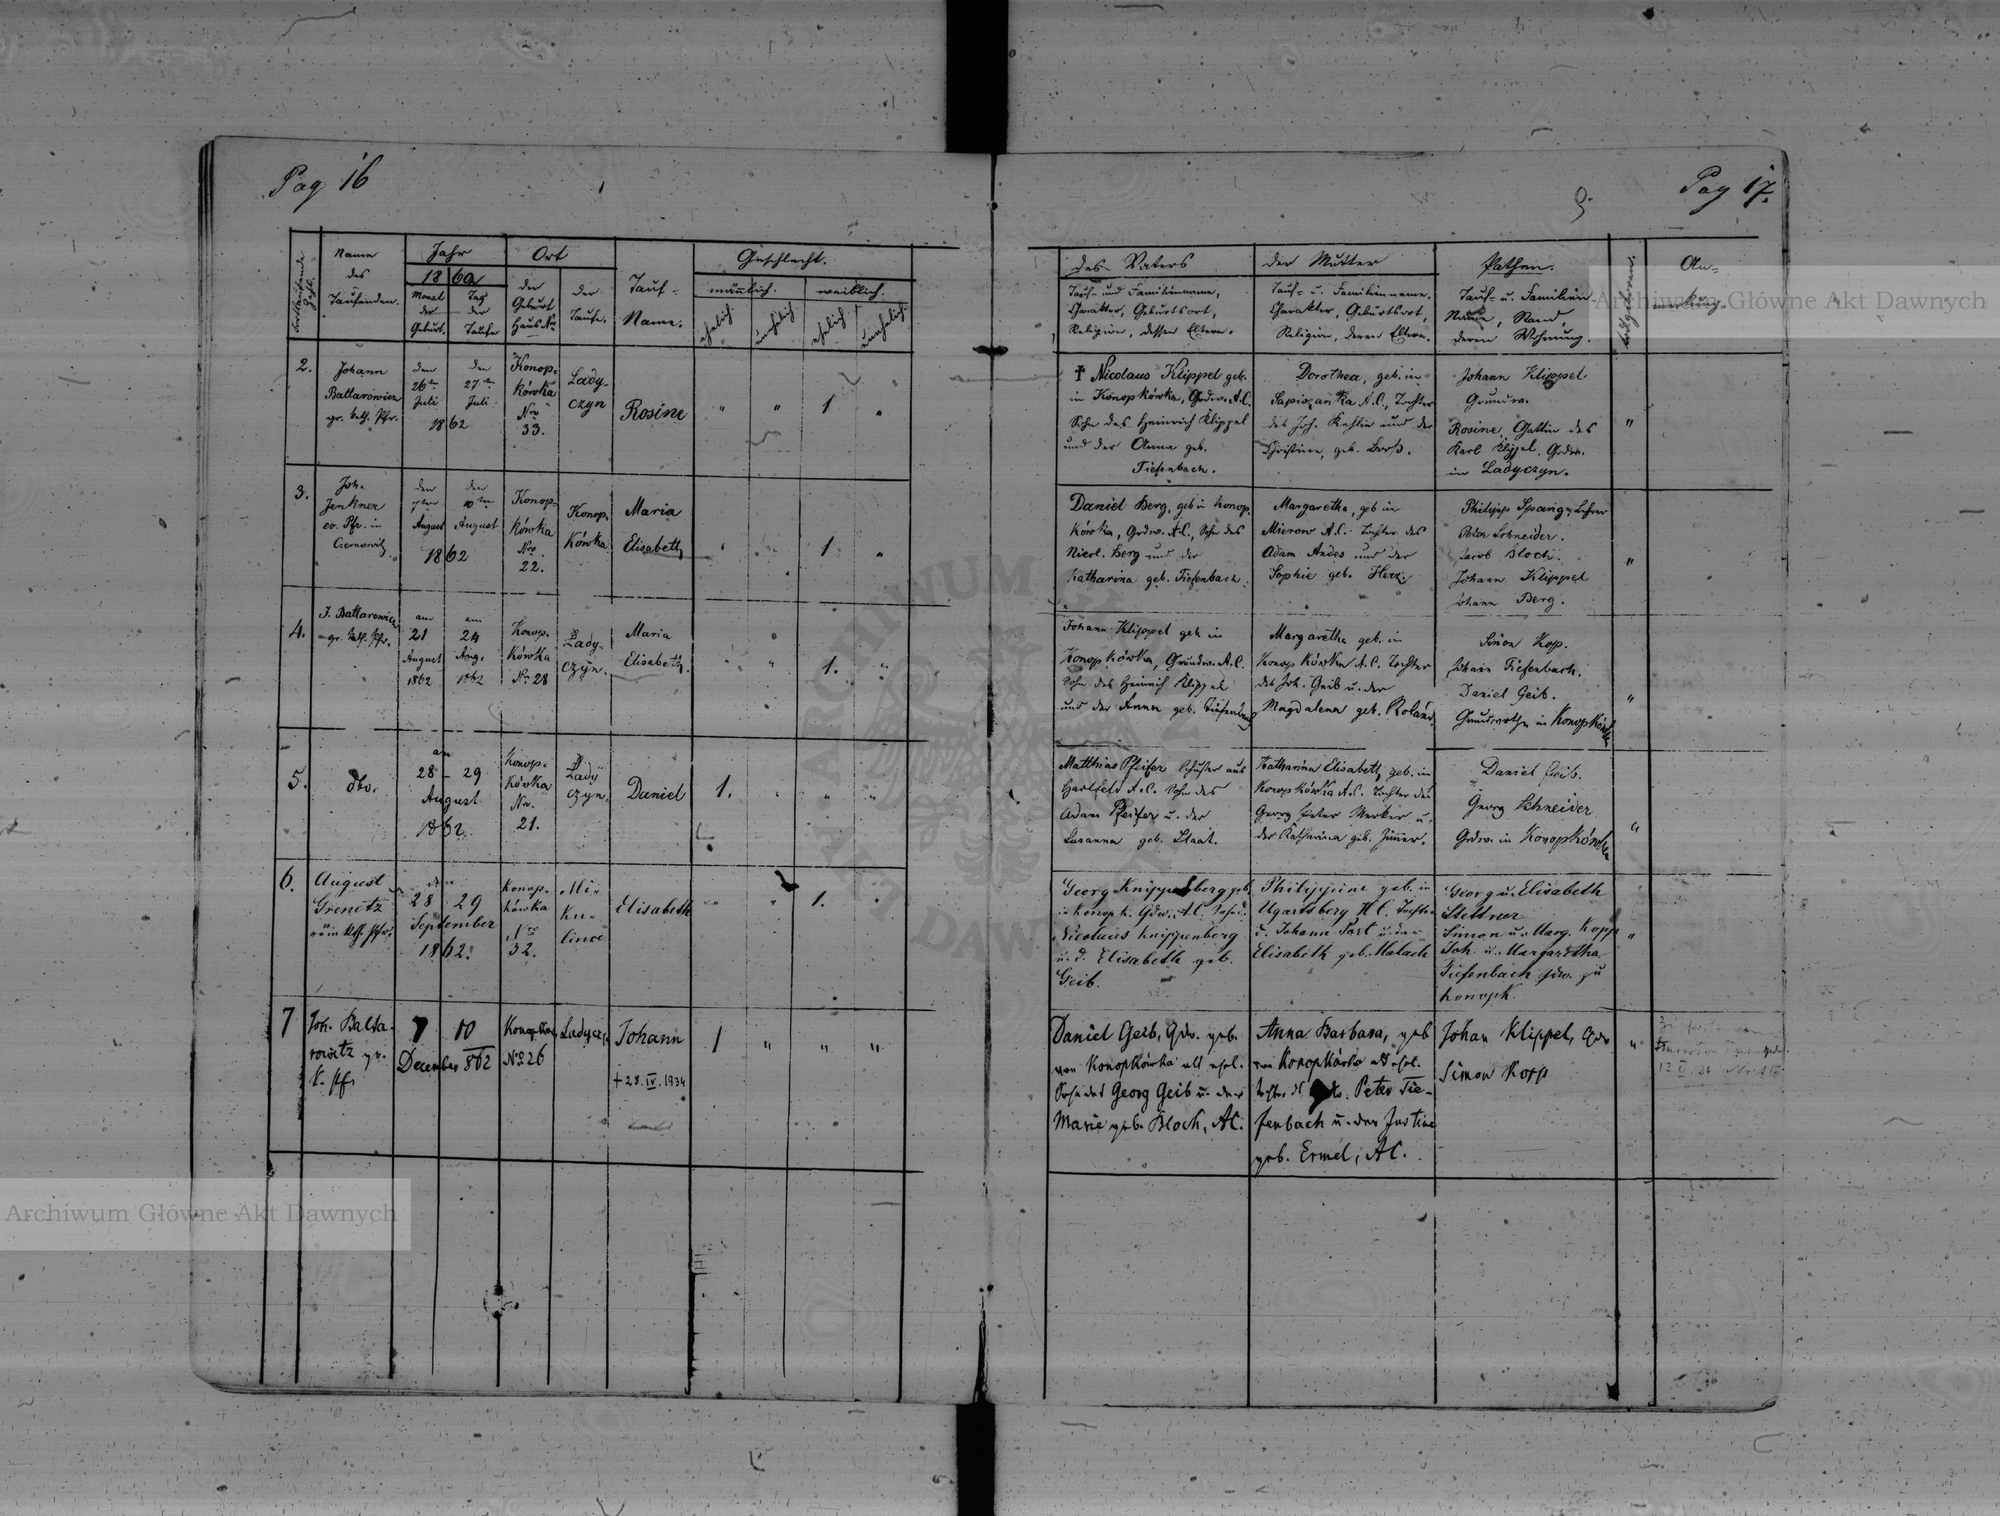 Pag 16
Pag 17.
Fortlaufende Zahl.
Name
des
Taufenden.
Jahr
1862
Monat
der
Geburt.
Tag
der
Taufe
Ort
der
Geburt
Haus No
der
Taufe.
Tauf-
Name.
Geschlecht.
männlich.
weiblich.
ehelich.
unehelich
ehelich
unehelich.
des Vaters
Tauf- und Familienname,
Charakter, Geburtsort,
Religion, dessen Eltern.
der Mutter
Tauf- u. Familienname,
Charakter, Geburtsort,
Religion, deren Eltern.
Pathen.
Tauf- u. Familien-
Name, Stand,
deren Wohnung.
Todtgeboren.
An-
merkung.
2.
Johann
Baltarowicz
gr. kath. Pfr.
den
26ten
Juli
den
27ten
Juli
1862
Konop-
kówka
Nro
33.
Lady-
czyn
Rosine
" " 1 "
† Nicolaus Klippel geb.
in Konopkówka, Grdw. A.C.
Sohn des Heinrich Klippel
und der Anna geb.
Tiefenbach.
Dorothea, geb. in
Sapiszanka A.C., Tochter
des Joh. und der
Christine, geb.
Johann Klippel
Grundw.
Rosine, Gattin des
Karl Klippel, Grdw.
in Ladyczyn.
"
3.
Joh.
Jenkner
ev. Pfr. in
den
7ten
August
den
10ten
August
1862
Konop-
kówka
Nro
22.
Konop.
Kówka
Maria
Elisabeth
" " 1 "
Daniel Berg, geb. in Konop.
kówka, Grdw. A.C., Sohn des
Nicol. Berg und der
Katharina geb. Tiefenbach.
Margaretha, geb. in
Mierow A.C. Tochter des
Adam Andes und der
Sophie geb. Herz.
Philipp Lehrer
Peter Schneider.
Jacob Bloch.
Johann Klippel
Johann Berg.
"
4.
J. Baltarowicz
gr. kath. Pfr.
am
21
August
1862
am
24
Aug.
1862
Konop.
kówka
No 28
Lady-
czyn.
Maria
Elisabeth.
" " 1. "
Johann Klippel geb. in
Konopkówka, Grundw. A.C.
Sohn des Heinrich Klippel
und der Anna geb. Tiefenbach
Margaretha geb. in
Konopkówka A.C. Tochter
des Joh. Geib u. der
Magdalena geb. Roland.
Simon Kopp.
Johann Tiefenbach.
Daniel Geib.
Grundwirthe in Konopkówka
"
5.
dto.
am
28 - 29
August
1862.
Konop-
kówka
No.
21.
Lady
czyn.
Daniel
1. " " "
Matthias Pfeifer Schuster aus
Hartfeld A.C. Sohn des
Adam Pfeifer u. der
Susanna geb. Staat.
Katharina Elisabeth, geb. in
Konopkówka A.C. Tochter des
Georg Peter Merker u.
der Katharina geb.
Daniel Geib.
Georg Schneider
Grdw. in Konopkówka
"
6.
August
Grenetz
röm. kth. Pfr.
den
28 29
September
1862.
Konop-
kówka
Nro
32.
Mi-
ku-
lince
Elisabeth
" " 1. "
Georg Knippelberg geb.
in Konopk. Gdw. A.C. Sohn d.
Nicolaus Knippenberg
u. d. Elisabeth geb.
Geib.
Philippine geb. in
Ugartsberg H.C. Tochter
d. Johann Jost u. der
Elisabeth geb. Malach
Georg u. Elisabeth
Stettner
Simon u. Marg. Kopp
Joh. u. Margaretha
Tiefenbach Gdw. zu
Konopk.
"
7
Joh. Balta-
rowitz gr.
k. Pfr
7 10
December 862
Konopkow.
No 26
Ladyczyn
Johann
+ 28. IV. 1934
1 " " "
Daniel Geib, Gdw. geb.
von Konopkówka
Sohn des Georg Geib u. der
Marie geb. Bloch, AC.
Anna Barbara, geb
von Konopkówka
Peter Tie-
fenbach u. der Justine
geb. Ermel, AC.
Johan Klippel, Gdw
Simon Kopp
"
Archiwum Główne Akt Dawnych
Archiwum Główne Akt Dawnych